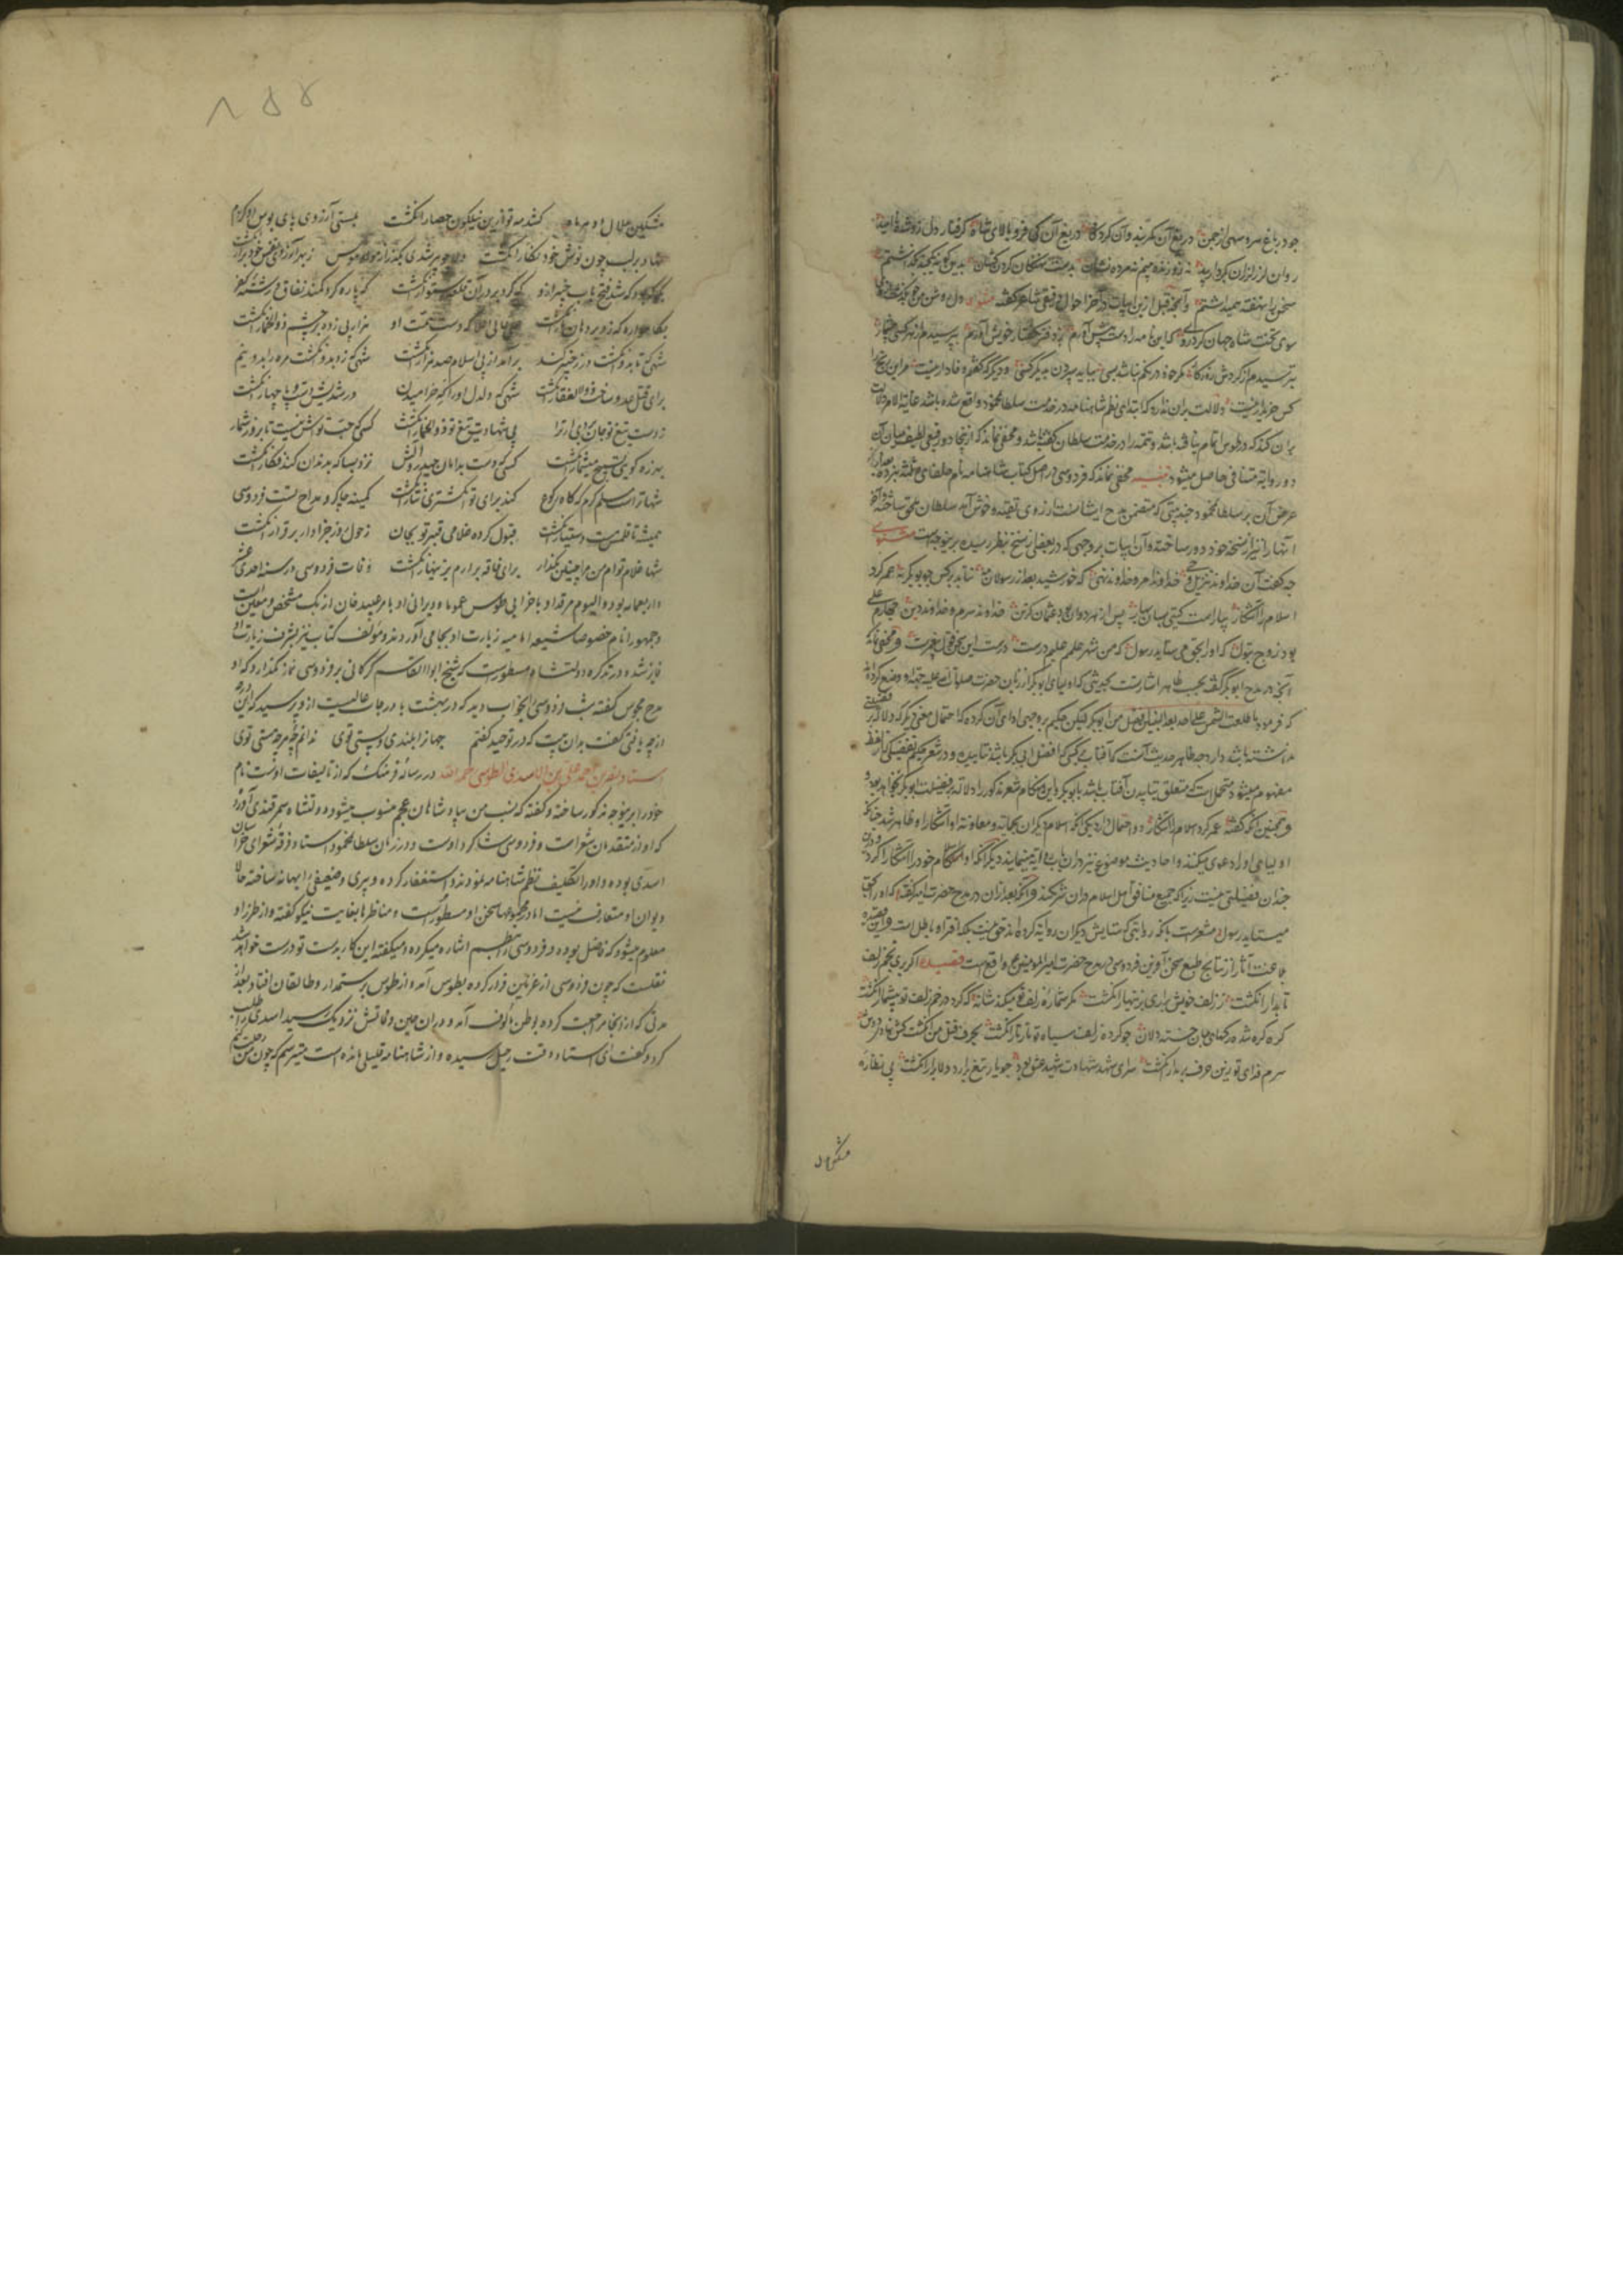 چو در باغ سرو سهی از چمن دریغ آن کمربند و آن گردگاه دریغ آن کی فرو بالای شاه گرفتار دل زو شده ناامید
روان لرز لرزان بکردار بید نه زو زنده بینم نه مرده نشان بدست نهنگان مردم کشان بدین گونه نه که نگذاشتم
سخن را نهفته همیداشتم و آنچه قبل از این ابیات در آخر احوال دقیقی شاعر گفته مثنوی دل روشن من
سوی تخت شاه جهان کرد روی که این نامه را دست پیش آورم ز دفتر بگفتار خویش آورم بپرسیدم از هر کسی بیشمار
بترسیدم از گردش روزگار مگر خود درنگم نباشد بسی بباید سپردن بدیگر کسی و دیگر که گنجم وفادار نیست مر این رنج را
کس خریدار نیست دلالت بر آن ندارد که ابتدای نظم شاهنامه در خدمت سلطان محمود واقع شده باشد غایة الامر دلالت
بر آن کند که در طوس اتمام نیافته باشد و تتمه را در خدمت سلطان گفته باشد و مخفی نماند که از اینجا دو رفع لطیف میان آن
دو روایة متنافی حاصل میشود تنبیه مخفی نماند که فردوسی در اصل کتاب شاهنامه نام خلفای ثلثه نبرده بود و در
عرض آن بر سلطان محمود چند بیتی که متضمن مدح ایشانست از روی تقیه و خوش آمد سلطان ملحق ساخته و آخر
آنها را نیز از نسخه خود دور ساخته و آن ابیات بر وجهی که در بعضی از نسخ بنظر رسیده برینوجه است مثنوی
چه گفت آن خداوند تنزیل و وحی خداوند امر و خداوند نهی که خورشید بعد از رسولان مه نتابید بر کس چو بوبکر به عمر کرد
اسلام را آشکار بیاراست گیتی بسان بهار پس از هر دوان بود عثمان گزین خداوند شرم و خداوند دین چهارم علی
بود زوج بتول که او را بحق می ستاید رسول که من شهر علمم علیم درست درست این سخن قول پیغمبرست و مخفی نماند که
آنچه در مدح ابوبکر گفته بحسب ظاهر اشارتست بحدیثی که اولیای ابوبکر از زبان حضرت صلوات الله علیه و آله وضع کرده اند
که فرمود ما طلعت الشمس علی احد بعد النبیین افضل من ابی بکر لیکن حکیم بر وجهی ادای آن کرده که احتمال معنی دیگر که دلالت بر فضیلتی
نداشته باشد دارد چه ظاهر حدیث آنست که آفتاب بر کسی که افضل از ابی بکر باشد نتابیده و در شعر حکیم تفضیلی که از لفظ به
مفهوم میشود محتمل است که متعلق بتابیدن آفتاب باشد با بوبکر و این هنگام شعر مذکور را دلالت بر فضیلت ابوبکر نخواهد بود
و همچنین آنکه گفته عمر کرد اسلام را آشکار دو احتمال دارد یکی آنکه اسلام دیگران بحمایت و معاونت او آشکار و ظاهر شد چنانکه
اولیای او دعوی میکنند و احادیث موضوع نیز در آن باب روایت مینمایند دیگر آنکه او اسلام خود را آشکارا کرد و درین
چندان فضیلتی نیست زیرا که جمیع منافق اهل اسلام در آن شریکند و آنکه بعد از آن در مدح حضرت امیر گفته که او را بحق
میستاید رسول مشعرست بآنکه روایتی که ستایش دیگران روایة کرده اند حق نیست بلکه افترا و باطل است و این قصیده
بلاغت آثار از نتایج طبع سخن آفرین فردوسی در مدح حضرت امیر المومنین ع واقع است قصیده اگر بری بخم زلف
تابدار انگشت ز زلف خویش برآری بزینهار انگشت مگر شماره زلف تو میکند شانه که کرد در خم زلف تو بیشمار انگشت
گره گره شده رگهای جان خسته دلان چو کرده زلف سیاه تو تار تار انگشت بحرف قتل من انگشت کش نهاد در دوش
سرم فدای تو زین حرف بر مدار انگشت سزای شهد شهادت شهید عشق بود چو یار تیغ برآرد دلا برآر انگشت پی نظاره
مشکین
مشکین هلال دو هر ماه کشد مه تو ازین نیلگون حصار انگشت ببستی آرزوی پای بوس دارم
نهاد بر لب چون نوش خود نگار انگشت دلا چو مرشدی بگذر از هوا و هوس ز بهر آرزوی نفس خود برآر انگشت
که شد فتح باب خیبر ازو که کرد بر در آن قلعه استوار انگشت که پاره کرد کمند نفاق در شش
بگاهواره که زو بر دهان انگشت علی عالی اعلا که دست همت او هزار پی زده بر چشم ذوالخمار انگشت
شهی که تا بدو انگشت در ز خیبر کند برآمد از پی اسلام صد هزار انگشت شهی که زد بدو انگشت مره را بدو نیم
برای قتل عدو ساخت ذوالفقار انگشت شهی که دلدل او را گه خرامیدن در رشد پیش دست و پا چهار انگشت
ز دست تیغ تو جان برای اژدها پی شهادت تیغ تو ذوالخمار انگشت کسی که حب تواش نیست تا بروز شمار
بهرزه گو پی تسبیح میشمار انگشت کسی که دست بدامان حیدر و آلش نزد بسا که بدندان کند فگار انگشت
شها تراست مسلم کرم که گاه رکوع کند برای تو انگشتری نثار انگشت کمینه چاکر و مداح تست فردوسی
همیشه تا قلمش هست دستیار انگشت قبول کرده غلامی قنبر تو بجان ز هول روز جزا دار برقرار انگشت
شها غلام توام من مرا چنین مگذار برای فاقه برآرم بزینهار انگشت وفات فردوسی در سنه احدی عشر
و اربعمایه بود و الیوم مرقد او با خرابی طوس عموما و ویرانی او بامر عبید خان ازبک مشخص و معین است
و جمهور انام خصوصا شیعه امامیه زیارت او بجامی آورند و مؤلف کتاب نیز بشرف زیارت او
فایز شده و در تذکره دولتشاه مسطورست که شیخ ابو القاسم گرگانی بر فردوسی نماز نگذارد که او
مدح مجوس گفته شب فردوسی را بخواب دید که در بهشت با درجات عالیست از وپرسید که این درجه
از چه یافتی گفت بدان بیت که در توحید گفتم جهان را بلندی و پستی توی ندانم چه هر چه هستی توی
استاد علی بن احمد الاسدی الطوسی رحمه الله در رساله فرهنگ که از تالیفات اوست نام
خود را برینوجه مذکور ساخته و گفته که نسب من بپادشاهان عجم منسوب میشود و دولتشاه سمرقندی آورده
که او از متقدمان شعراست و فردوسی شاگرد اوست و در زمان سلطان محمود استاد فرقه شعرای خراسان
اسدی بوده و او را تکلیف نظم شاهنامه نمودند و استغفار کرده و پیری و ضعیفی را بهانه ساخته حالا
دیوان او متعارف نیست اما در مجموعها سخن او مسطورست و مناظرها بغایت نیکو گفته و از طرز او
معلوم میشود که فاضل بوده و فردوسی را بنظم اشاره میکرده و میگفته این کار بدست تو درست خواهد شد
نقلست که چون فردوسی از غزنین فرار کرده بطوس آمد و از طوس برستمدار و طالقان افتاد بعد از
مدتی که از آنجا مراجعت کرده بوطن مألوف آمد و در آن حین وفاتش نزدیک رسید اسدی را طلب
کرد و گفت ای استاد وقت رحیل رسیده و از شاهنامه قلیلی مانده است میترسم که چون من رحلت کنم